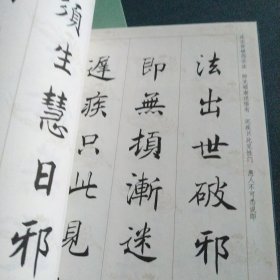 法出世破邪
即無頓漸迷
遲疾只此見
須生慧日邪